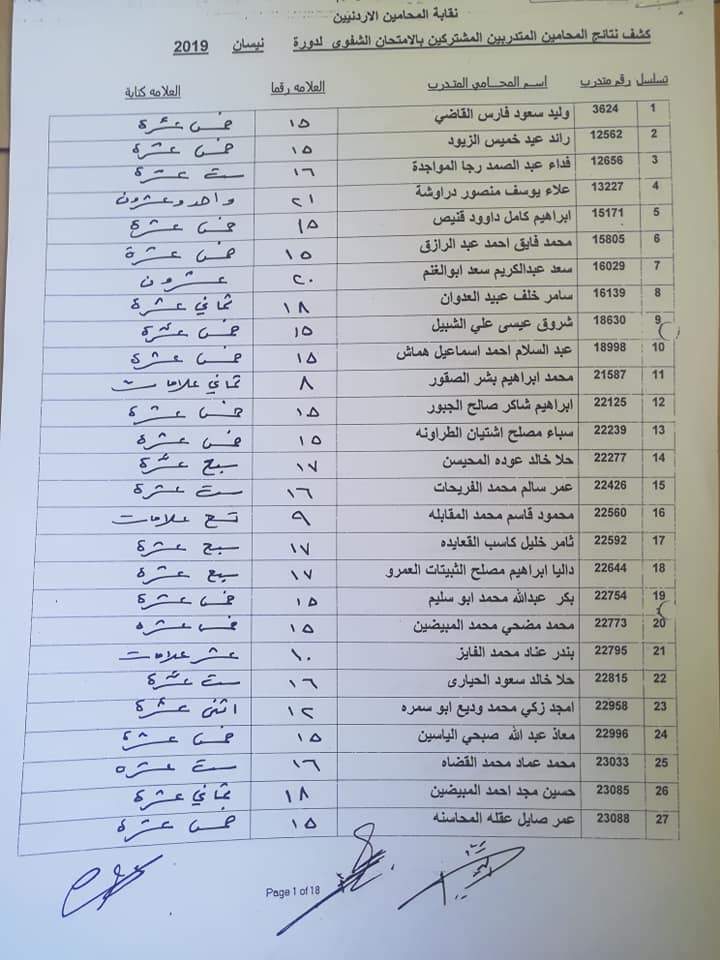 نقابة المحامين الاردنيين
كشف نتائج المحامين المتدربين المشتركين بالامتحان الشفوي لدورة نيسان 2019
تسلسل رقم متدرب اســم المحـامي المتدرب العلامه رقما العلامه كتابة
1 3624 وليد سعود فارس القاضي ١٥ خمس عشرة
2 12562 رائد عيد خميس الزيود ١٥ خمس عشرة
3 12656 فداء عبد الصمد رجا المواجدة ١٦ ست عشرة
4 13227 علاء يوسف منصور دراوشة ٢١ واحد وعشرون
5 15171 ابراهيم كامل داوود قنيص ١٥ خمس عشرة
6 15805 محمد فايق احمد عبد الرازق ١٥ خمس عشرة
7 16029 سعد عبدالكريم سعد ابوالغنم ٢٠ عشرون
8 16139 سامر خلف عبيد العدوان ١٨ ثماني عشرة
9 18630 شروق عيسى علي الشبيل ١٥ خمس عشرة
10 18998 عبد السلام احمد اسماعيل هماش ١٥ خمس عشرة
11 21587 محمد ابراهيم بشر الصقور ٨ ثماني علامات
12 22125 ابراهيم شاكر صالح الجبور ١٥ خمس عشرة
13 22239 سباء مصلح اشتيان الطراونه ١٥ خمس عشرة
14 22277 حلا خالد عوده المحيسن ١٧ سبع عشرة
15 22426 عمر سالم محمد الفريحات ١٦ ست عشرة
16 22560 محمود قاسم محمد المقابله ٩ تسع علامات
17 22592 ثامر خليل كاسب القعايده ١٧ سبع عشرة
18 22644 داليا ابراهيم مصلح الثبيتات العمرو ١٧ سبع عشرة
19 22754 بكر عبدالله محمد ابو سليم ١٥ خمس عشرة
20 22773 محمد مضحي محمد المبيضين ١٥ خمس عشره
21 22795 بندر عناد محمد الفايز ١٠ عشر علامات
22 22815 حلا خالد سعود الحيارى ١٦ ست عشرة
23 22958 امجد زكي محمد وديع ابو سمره ١٢ اثنى عشرة
24 22996 معاذ عبد الله صبحي الياسين ١٥ خمس عشرة
25 23033 محمد عماد محمد القضاه ١٦ ست عشره
26 23085 حسين مجد احمد المبيضين ١٨ ثماني عشرة
27 23088 عمر صايل عقله المحاسنه ١٥ خمس عشرة
Page 1 of 18